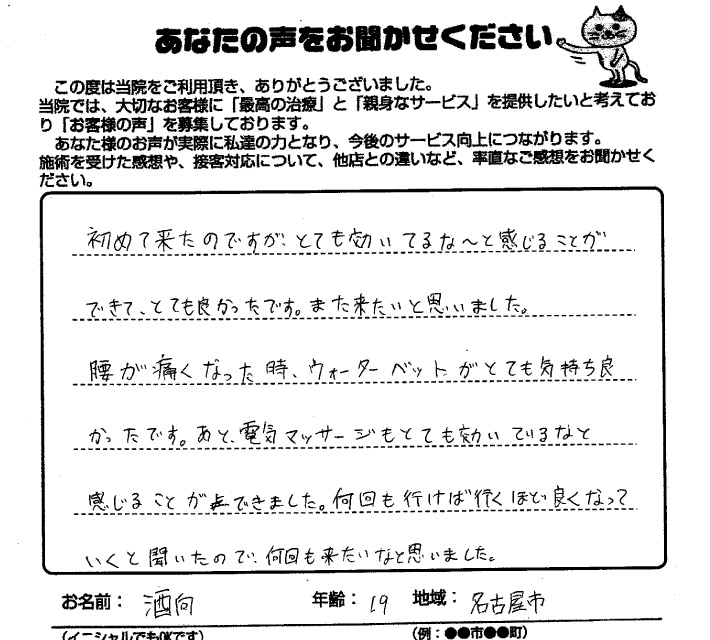 あなたの声をお聞かせください
この度は当院をご利用頂き、ありがとうございました。
当院では、大切なお客様に「最高の治療」と「親身なサービス」を提供したいと考えてお
り「お客様の声」を募集しております。
あなた様のお声が実際に私達の力となり、今後のサービス向上につながります。
施術を受けた感想や、接客対応について、他店との違いなど、率直なご感想をお聞かせく
ださい。
初めて来たのですが、とても効いてるな〜と感じることが
できて、とても良かったです。また来たいと思いました。
腰が痛くなった時、ウォーターベットがとても気持ち良
かったです。あと、電気マッサージもとても効いているなと
感じることができました。何回も行けば行くほど良くなって
いくと聞いたので、何回も来たいなと思いました。
お名前： 酒向 年齢： 19 地域： 名古屋市
（イニシャルでもOKです） （例：●●市●●町）